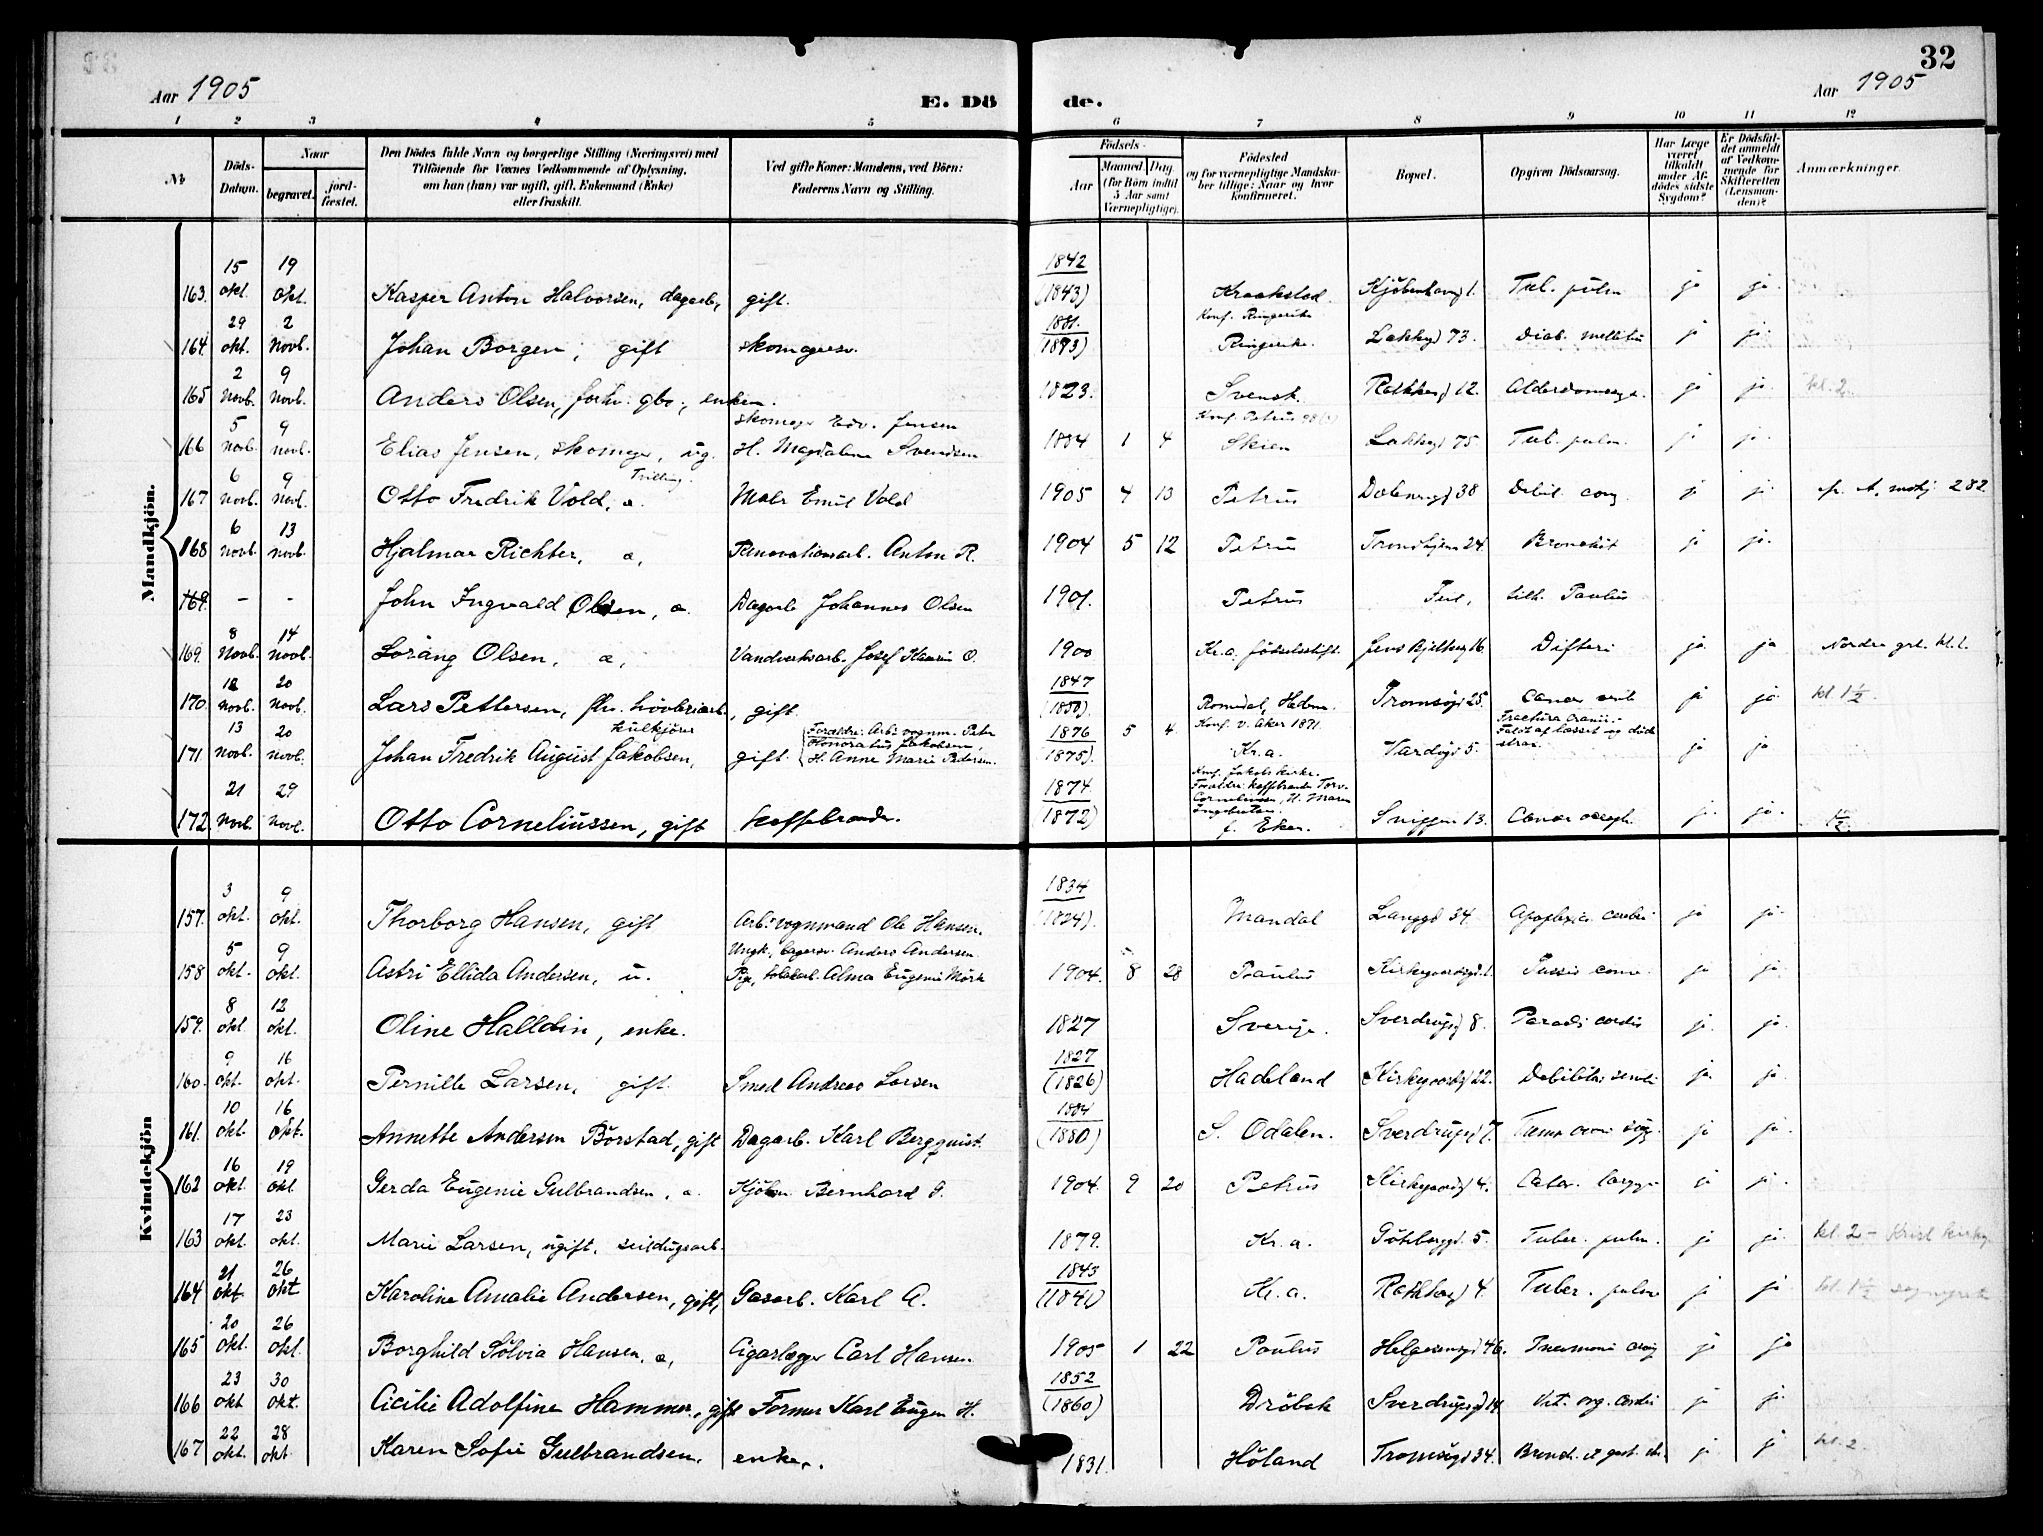 32
Aar 1905
E. Dö
de.
Aar 1905
1 2 3 4 5 6 7 8 9 10 11 12
No
Döds-Datum.
Naar
begravet.
jord-fæstet.
Den Dödes fulde Navn og borgerlige Stilling (Næringsvei) med Tilföiende for Voxnes Vedkommende af Oplysning, om han (hun) var ugift, gift, Enkemand (Enke) eller fraskilt.
Ved gifte Koner: Mandens, ved Börn: Faderens Navn og Stilling.
Födsels-
Aar
Maaned. Dag.
(for Börn indtil 5 Aar samt Værnepligtige).
Födested og for værnepligtige Mandskaber tillige: Naar og hvor konfirmeret.
Bopæl.
Opgiven Dödsaarsag.
Har Læge været tilkaldt under Afdödes sidste Sygdom?
Er Dödsfaldet anmeldt af Vedkommende for Skifteretten (Lensmanden)?
Anmærkninger.
Mandkjön.
163. 15 okt. 19 okt. Kasper Anton Halvorsen, dagarb, gift. 1842 (1843) Kraakstad. Kjöbenhavng 1. Tub. pulm ja ja.
164. 29 okt. 2 novb. Johan Borgen, gift skomagersv. 1881. 1893) Konf. Ringerike Ringerike. Lakkeg 73. Diab. mellitus ja ja.
165 2 novb. 9 novb. Anders Olsen, forhv. gbr., enkem. 1823. Svensk. Rathkesg 12. ja ja. kl. 2
166 5 novb. 9 novb. Elias Jensen, skomager, ug. skomager Edv. Jensen H. Magdalena Svendsen 1884 1 4 Konf. Petrus 98 Skien Lakkeg 75. Tub. pulm. ja ja.
167 6 novb. 9 novb. Otto Fredrik Vold, æ. Tvilling. Maler Emil Vold 1905 4 13 Petrus 38 Debil. cong. ja ja 282
168 6 novb. 13 novb. Hjalmar Richter, æ, Renovationsarb. Anton R. 1904 5 12 Petrus Trondhjems 24. Bronchit ja ja.
169. - - John Ingvald Olsen, æ. Dagarb Johannes Olsen 1901. Petrus Feil, tilh. Paulus
169. 8 novb. 14 novb. Lorang Olsen, æ, Vandverksarb. Josef Olsen O. 1900 Kr.a. födselsstift. Jens Bjelkesg 16. Difteri ja ja Nordre grl. kl. 1.
170. 12 novb. 20 novb. Lars Pettersen, fhv. hövleriarb., gift. 1847 (1850) Romedal, Hedm. Tromsög 25. Cancer ja ja. kl. 1½.
171. 13 novb. 20 novb. Johan Fredrik August Jakobsen, kulkjörer gift. Forældre: Arb. vognm. Peter Honoratius Jakobsen, H. Anne Marie Pedersen. 1876 (1875). 5 4. Konf. V. Aker 1871. Kr.a. Vardög 5. Fractura cranii. Faldt af læsset og döde strax. ja ja
172. 21 novb. 29 novb. Otto Corneliussen, gift kaffebrænder. 1874. 1872) Konf. Jakobs kirke. Forældre: kaffebrænder Torv. Corneliussen, H. Maren Ingebretsen f. Eker. 13. Cancer oesoph. ja. ja. 1½.
Kvindekjön
157. 3 okt. 9 okt. Thorborg Hansen, gift Arb. vognmand Ole Hansen. 1834 (1824). Mandal Langgd 34. Apoplexia cerebri ja ja.
158 5 okt. 9 okt. Astri Ellida Andersen, u. Ungk., bagersv. Anders Andersen Pige, fabrikarb. Alma Eugenie Mörk 1904. 8 28 Paulus Kirkegaardsgd. 1. Tussis conv. ja ja.
159. 8 okt. 12 okt. Oline Halldin, enke. 1827 Sverige. Sverdrupsg 8. cordis ja. ja.
160. 9 okt. 16 okt. Pernille Larsen, gift Smed Andreas Larsen 1827 (1826) Hadeland Kirkegaardsg 22. Debilitas senilis ja. ja.
161. 10 okt. 16 okt. Annette Andersen Börstad, gift Dagarb. Karl Bergquist. 1884 (1880) S. Odalen. Sverdrupsg 7. ja ja.
162 16 okt. 19 okt. Gerda Eugenie Gulbrandsen, æ. Kjöbm. Bernhard G. 1904. 9 20 Petrus Kirkegaardsg 4. ja ja.
163 17 okt. 23 okt. Marie Larsen, ugift, seildugsarb. 1879. Kr.a. Göteborggd. 5. Tuber. pulm. ja ja. kl. 2 - Krist kirkeg.
164 21 okt 26 okt Karoline Amalie Andersen, gift, Gasarb. Karl A. 1843 (1841) Kr.a. Rathkesg 4. Tuber. pulm ja ja. kl. 1½
165 20 okt. 26 okt. Borghild Sölvia Hansen, æ, Cigarlægger Carl Hansen 1905 1 22 Paulus Helgesensgd 46. Pneumoni ja ja
166 23 okt 30 okt. Cicilie Adolfine Hammer, gift Former Karl Eugen H. 1852 (1860) Dröbak Sverdrupsgd 14 Vit. org. cordis ja ja.
167 22 okt. 28 okt. Karen Sofie Gulbrandsen, enke. 1831. Höland Tromsögd 34. Bronch. ja ja kl. 2.